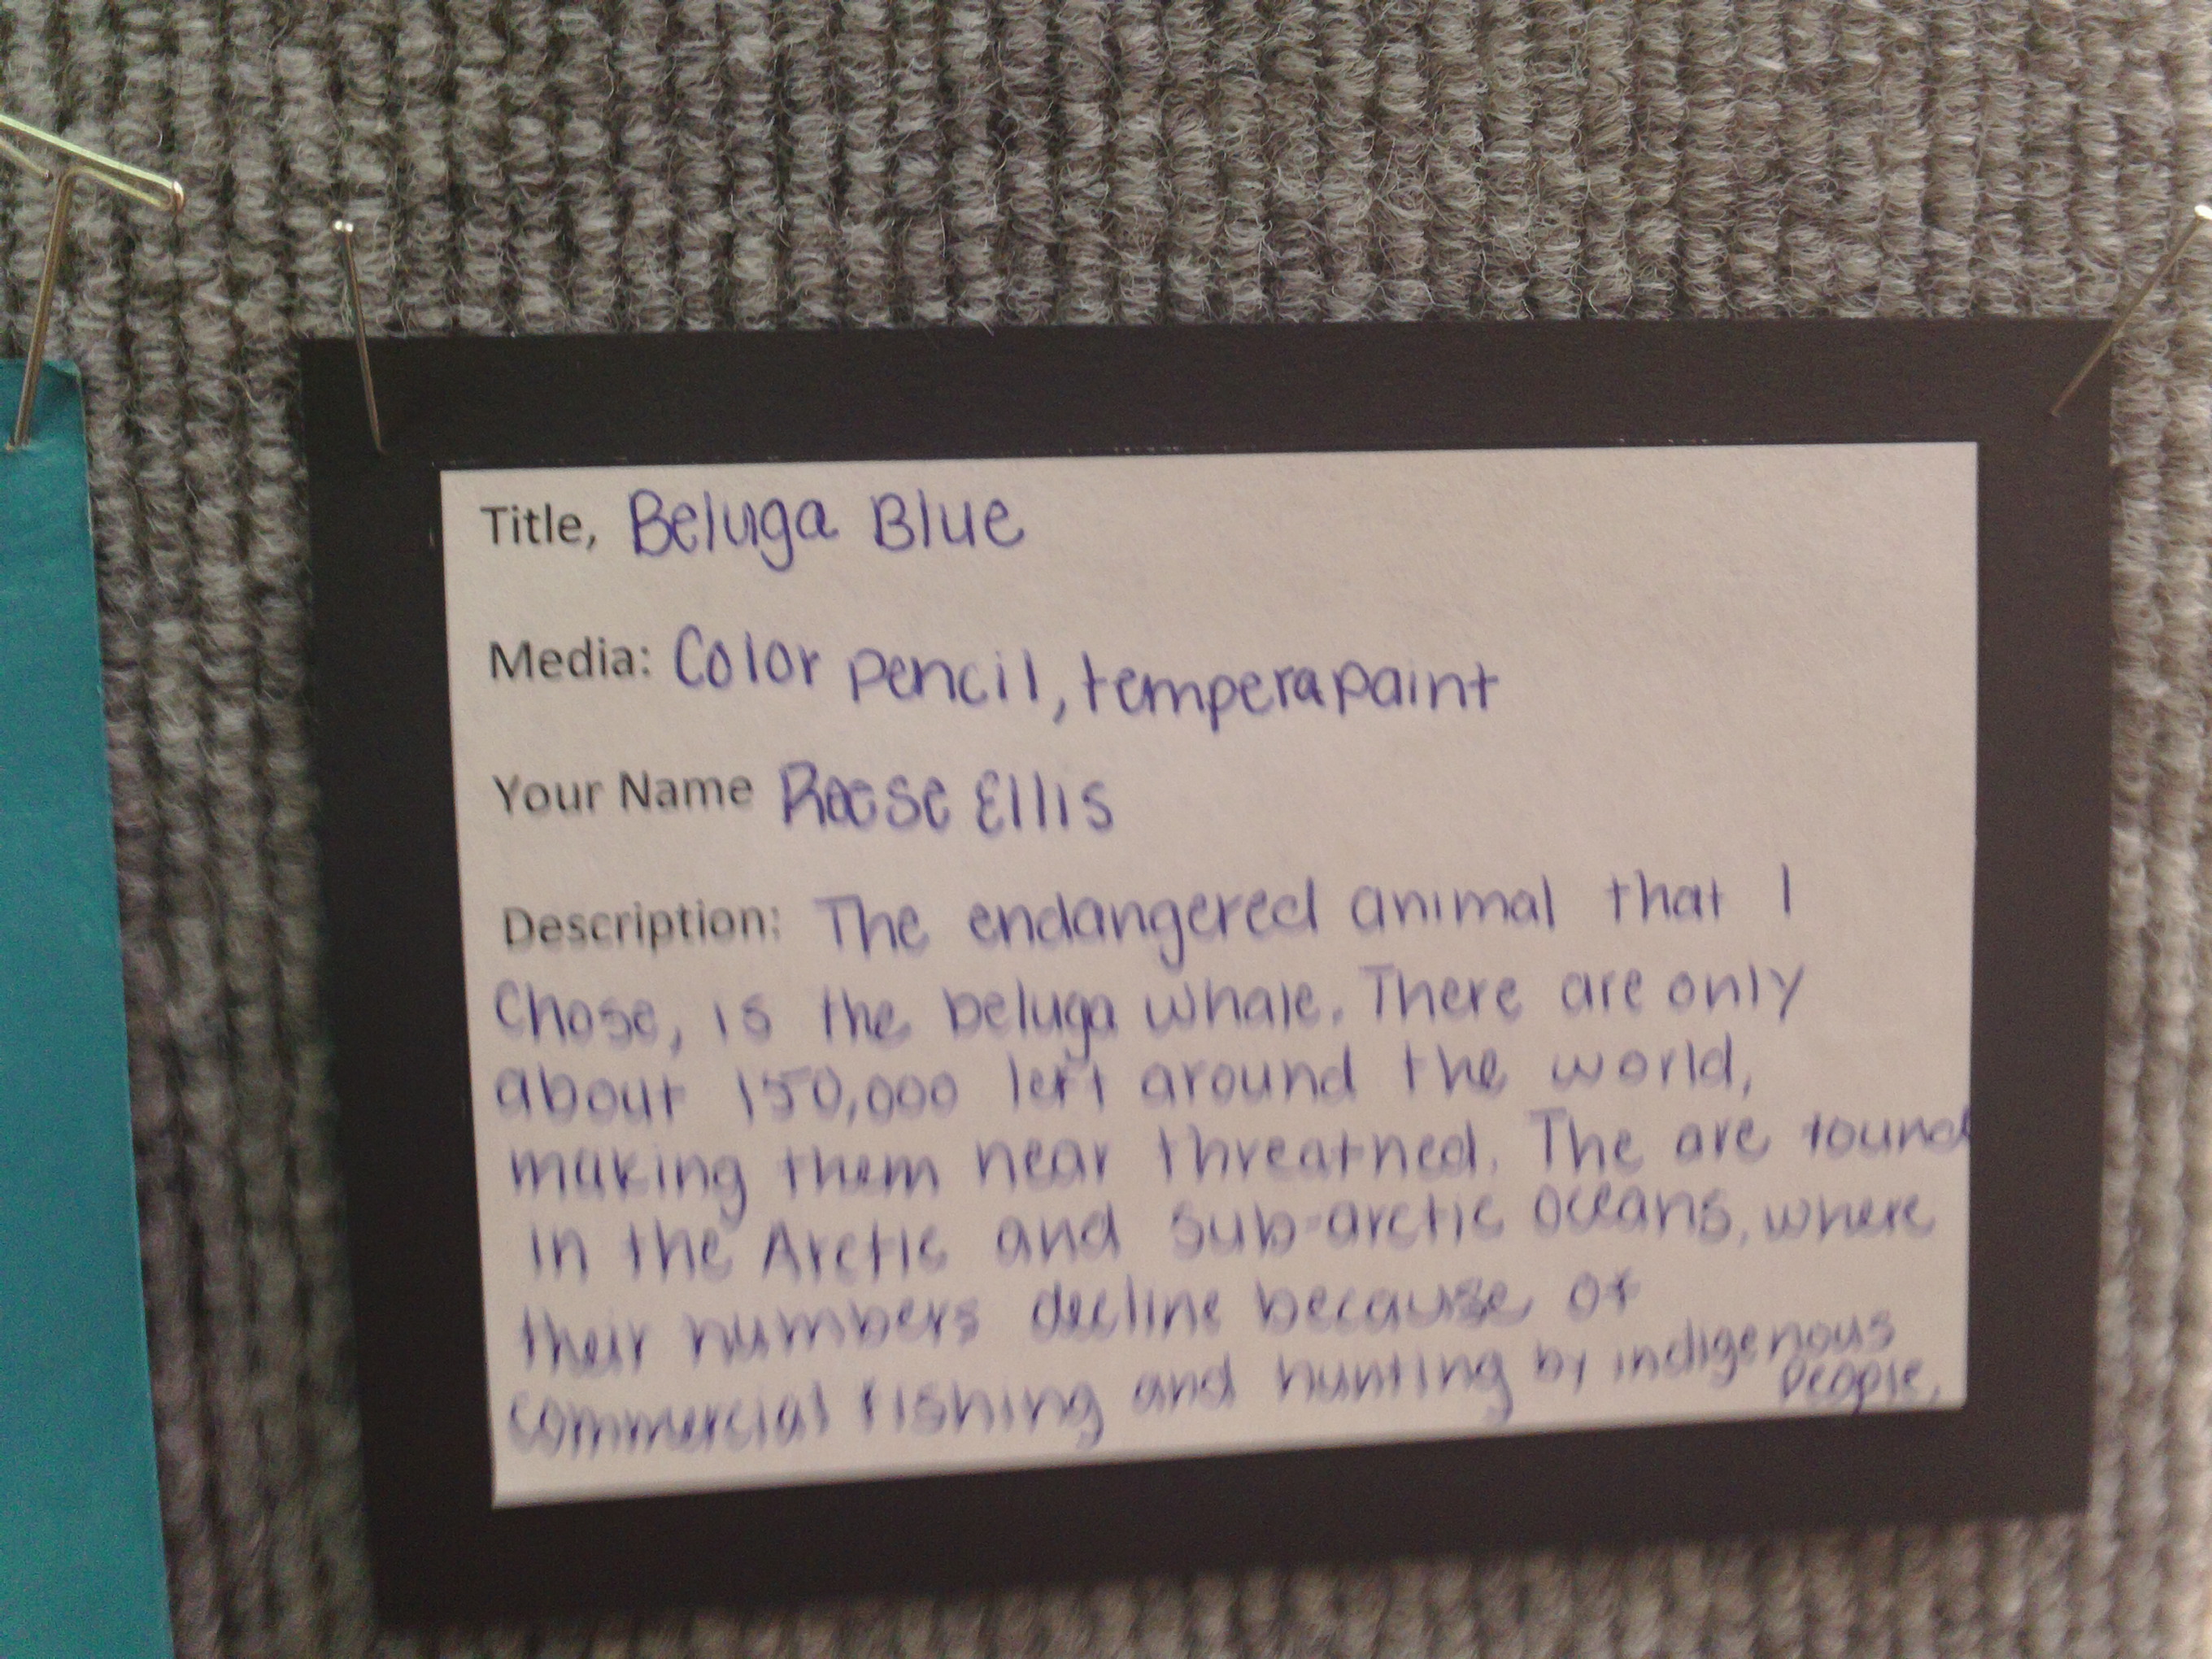 Title, Beluga Blue
Media: Color pencil, tempera paint
Your Name Reese Ellis
Description: The endangered animal that I
Chose, is the beluga whale. There are only
about 150,000 left around the world,
making them near threatned. The are found
in the Arctic and sub-arctic oceans, where
their numbers decline because of
commercial fishing and hunting by indigenous
people.